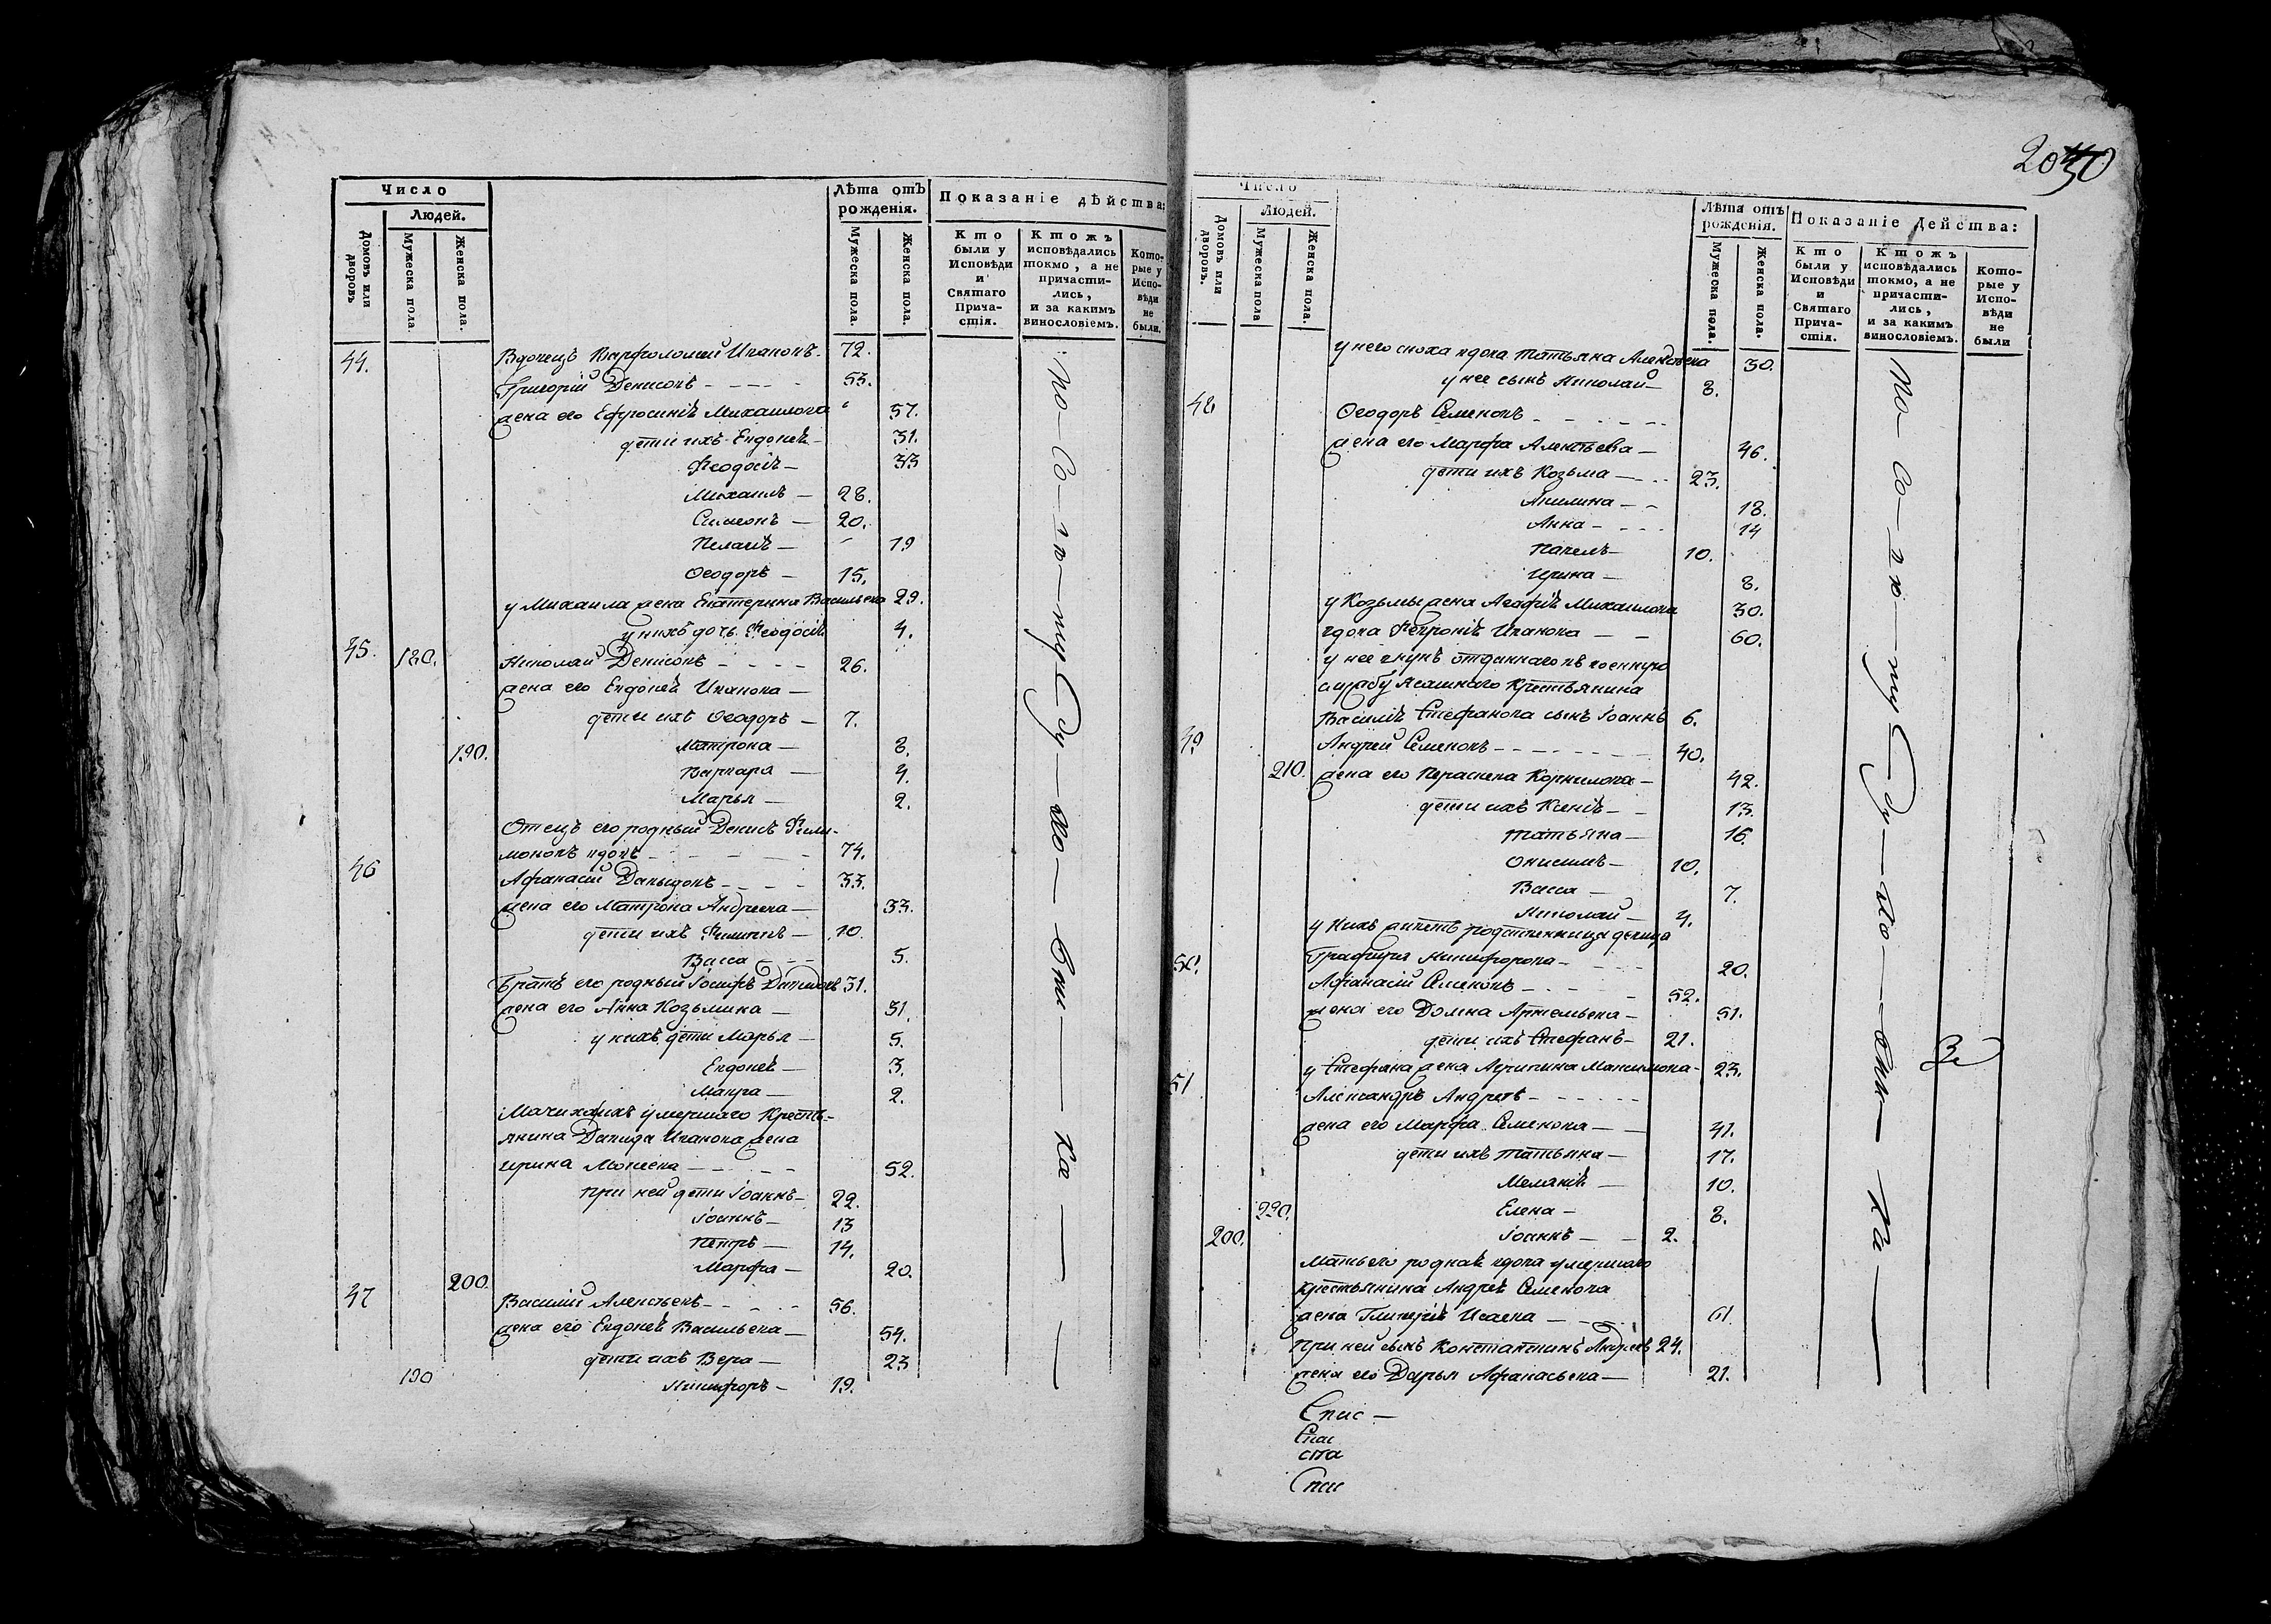 Число
Людей.
Домовъ или дворовъ
Мужеска пола.
Женска пола.
Лѣта отъ рожденія.
Мужеска пола.
Женска пола.
Показаніе дѣйства:
Кто были у Исповѣди и Святаго Прича-стія.
Ктожъ исповѣдались токмо, а не причасти-лись, и за какимъ винословіемъ.
Кото-рые у Испо-вѣди не были.
44. Вдовецъ Варфоломей Ивановъ - 72.
Григорій Денисовъ - 53.
жена его Ефросинія Михаилова 57.
дети ихъ Евдокія - 31.
Феодосія - 33
Михаилъ - 28.
Симеонъ - 20.
Пелагія - 19
Ѳеодоръ - 15.
у Михаила жена Екатерина Васильева 29.
у нихъ дочь Феодосія 4.
45. 180. Николай Денисовъ - 26.
жена его Евдокія Иванова -
дети ихъ Ѳеодоръ - 7.
190. Матрона - 8.
Варвара - 4.
Марья - 2.
Отецъ его родный Денисъ Фили-
моновъ вдовъ - 74.
46 Афанасій Давыдовъ - 33.
жена его Матрона Андреева - 33.
дети ихъ Филиппъ - 10.
Васса - 5.
Братъ его родный Іосифъ Давыдовъ 31.
жена его Анна Козьмина - 31.
у нихъ дети Марья - 5.
Евдокія - 3.
Мавра - 2.
Мачиха ихъ умершаго Кресть-
янина Давида Иванова жена
Ирина Моисеева - 52.
при ней дети Іоаннъ - 22.
Іоаннъ - 13
Петръ - 14.
Марфа - 20.
47 200. Василій Алексѣевъ - 56.
жена его Евдокія Васильева - 54.
дети ихъ Вера - 23
190 Никифоръ - 19.
2030
Число
Людей.
Домовъ или дворовъ.
Мужеска пола
Женска пола.
Лѣта отъ рожденія.
Мужеска пола.
Женска пола.
Показаніе Действа:
Кто были у Исповѣди и Святаго Прича-стія.
Ктожъ исповѣдались токмо, а не причасти-лись, и за какимъ винословіемъ.
Кото-рые у Испо-вѣди не были
у него сноха вдова Татьяна Алексѣева 30.
у нее сынъ Николай - 8.
48 Ѳеодоръ Семеновъ -
жена его Марфа Алексѣева - 46.
дети ихъ Козьма - 23.
Акилина - 18.
Анна - 14
Павелъ - 10.
Ирина - 8.
у Козьмы жена Агафія Михаилова 30.
вдова Февронія Иванова - 60.
у нее внукъ отданнаго въ военную
службу ясашнаго Крестьянина
Василія Стефанова сынъ Іоаннъ 6.
49 Андрей Семеновъ - 40.
210. жена его Параскева Корнилова - 42.
дети ихъ Ксенія - 13.
Татьяна - 16.
Онисимъ - 10.
Васса - 7.
Николай - 4.
у нихъ живетъ родственница девица
Графира Никифорова - 20.
50. Афанасій Семеновъ - 52.
жена его Домна Артемьева - 51.
дети ихъ Стефанъ - 21.
у Стефана жена Агрипина Максимова - 23.
51 Александръ Андреевъ -
жена его Марфа Семенова - 41.
дети ихъ Татьяна - 17.
Меланія - 10.
220. Елена - 8.
200. Іоаннъ - 2.
Мать его родная вдова умершаго
крестьянина Андрея Семенова
жена Гликерія Исаева - 61
при ней сынъ Константинъ Андреевъ 24.
жена его Дарья Афанасьева - 21.
Спис -